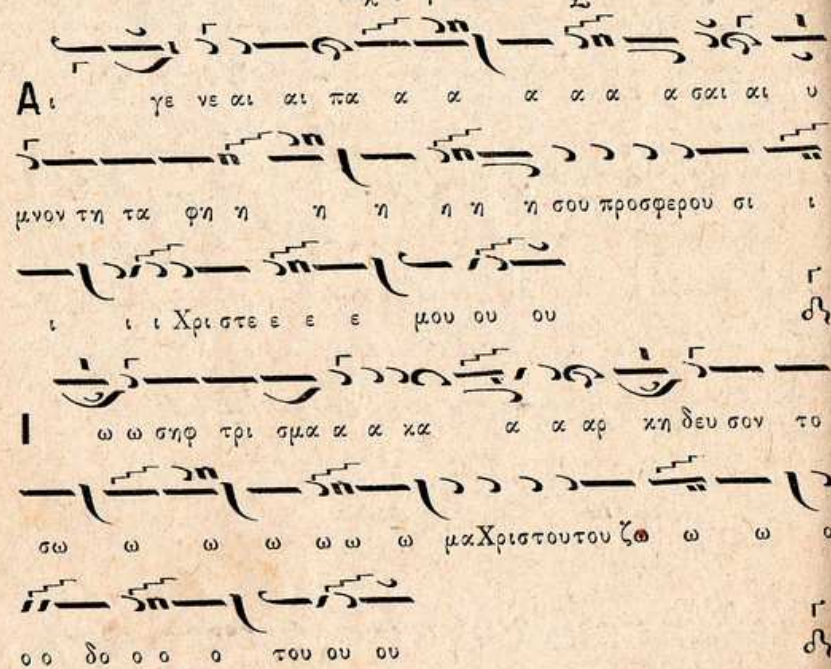 Αι γε νε αι αι πα α α α α α α σαι αι υ
μνον τη τα φη η η η η η η σου προσφερου σι ι
ι ι ι Χρι στε ε ε ε ε μου ου ου
Ι ω ω σηφ τρι σμα α α κα α α αρ κη δευ σον το
σω ω ω ω ω ω ω μα Χριστου του ζω ω ω ο
ο ο δο ο ο ο του ου ου